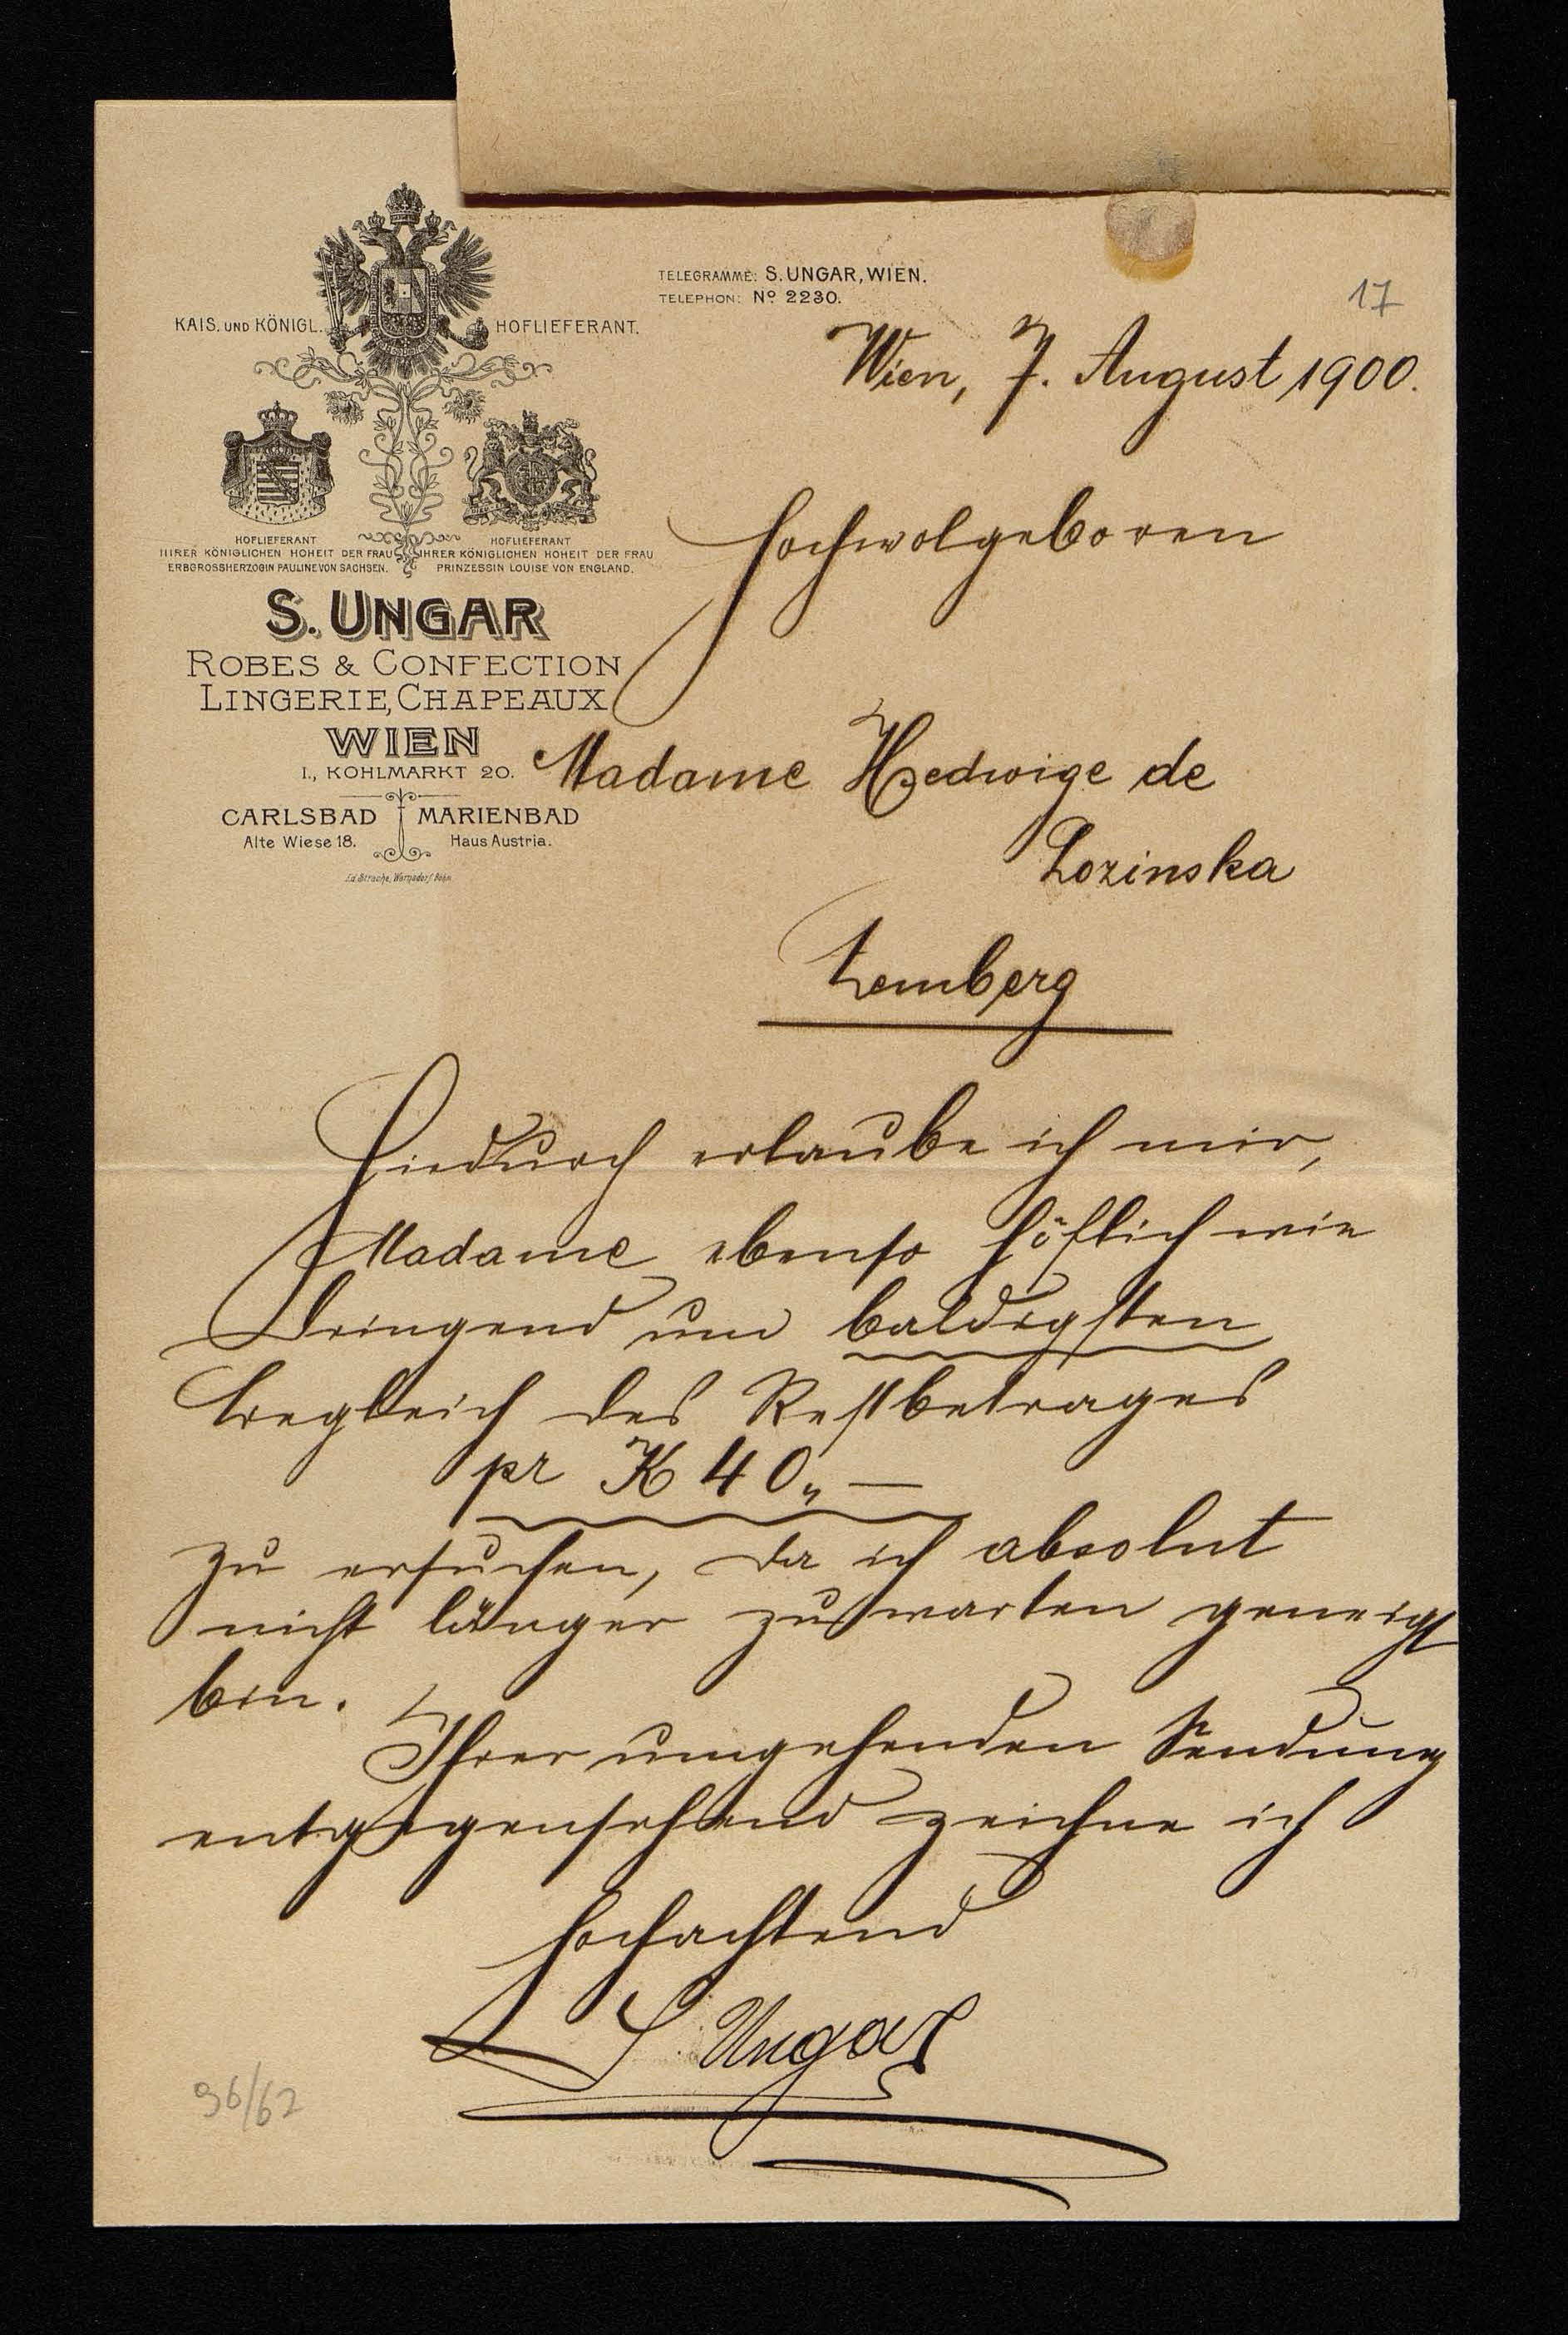 17
TELEGRAMME: S. UNGAR, WIEN.
TELEPHON: Nº 2230.
KAIS. UND KÖNIGL. HOFLIEFERANT.
HOFLIEFERANT
IHRER KÖNIGLICHEN HOHEIT DER FRAU
ERBGROSSHERZOGIN PAULINE VON SACHSEN.
HOFLIEFERANT
IHRER KÖNIGLICHEN HOHEIT DER FRAU
PRINZESSIN LOUISE VON ENGLAND.
S. UNGAR
ROBES & CONFECTION
LINGERIE, CHAPEAUX
WIEN
I., KOHLMARKT 20.
CARLSBAD
Alte Wiese 18.
MARIENBAD
Haus Austria.
Ed. Strache, Warnsdorf Böhm.
Wien, 7. August 1900.
Hochwolgeboren
Madame Hedwige de
Lozinska
Lemberg
Hiedurch erlaube ich mir,
Madame ebenso höflich wie
dringend um baldigsten
des Restbetrages
pr K 40,, —
zu ersuchen, da ich absolut
nicht länger zu warten geneigt
bin.
Ihrer umgehenden Sendung
entgegensehend zeichne ich
hochachtend
S. Ungar
96/62